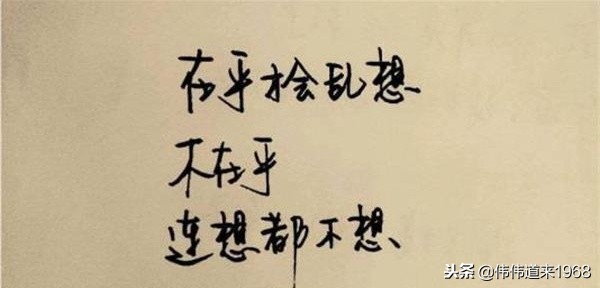 在乎才会乱想、
不在乎
连想都不想、
头条 @伟伟道来1968